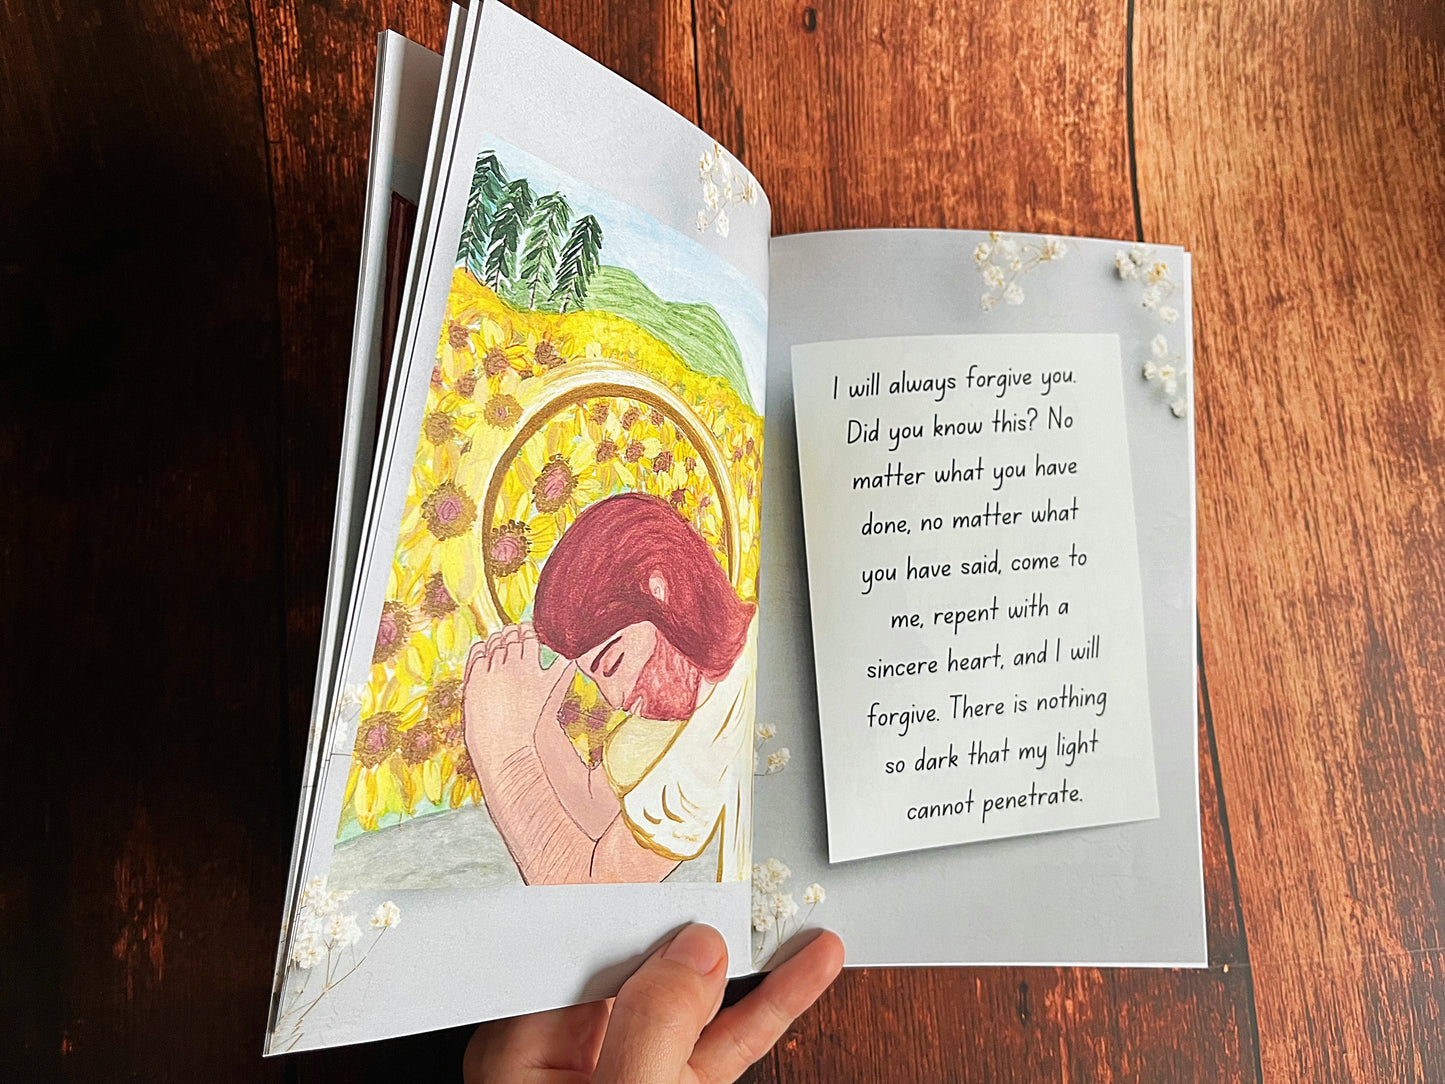 I will always forgive you.
Did you know this? No
matter what you have
done, no matter what
you have said, come to
me, repent with a
sincere heart, and I will
forgive. There is nothing
so dark that my light
cannot penetrate.